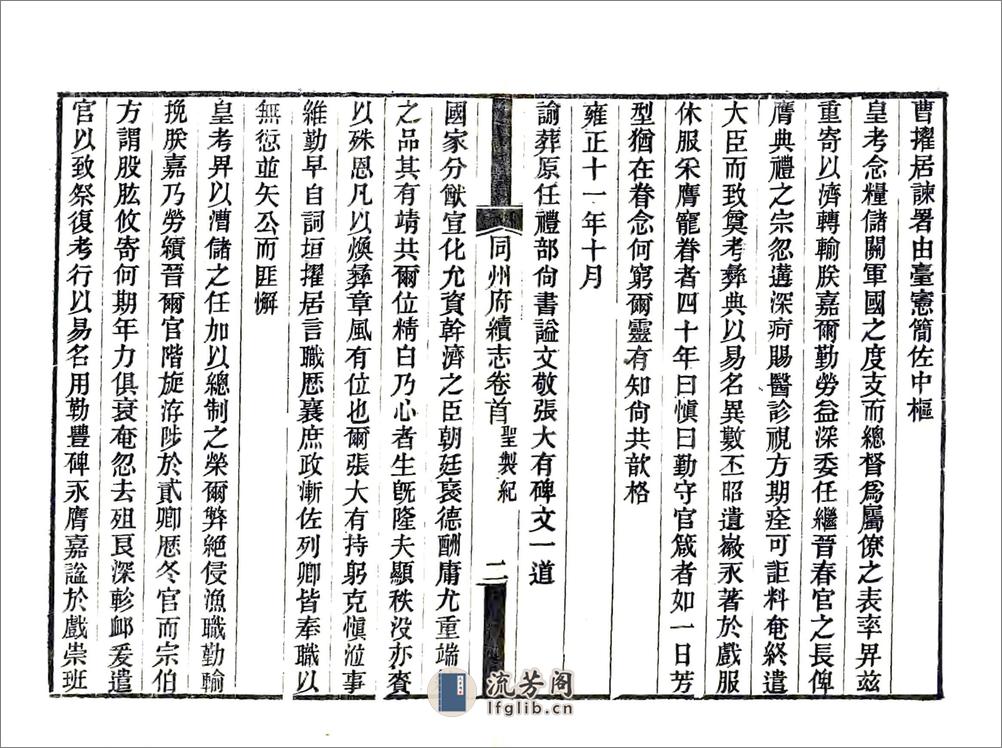 曹擢居諫署由臺憲簡佐中樞
皇考念糧儲關軍國之度支而總督爲屬僚之表率畀茲
重寄以濟轉輸朕嘉爾勤勞益深委任繼晉春官之長俾
膺典禮之宗忽遘深疴賜醫診視方期痊可詎料奄終遣
大臣而致奠考彝典以易名異數丕昭遺徽永著於戲服
休服采膺寵眷者四十年曰愼曰勤守官箴者如一日芳
型猶在眷念何窮爾靈有知尙共歆格
雍正十一年十月
諭葬原任禮部尙書謚文敬張大有碑文一道
同州府續志卷首 聖製紀 二
國家分猷宣化允資幹濟之臣朝廷襃德酬庸尤重端
之品其有靖共爾位精白乃心者生旣隆夫顯秩没亦賚
以殊恩凡以煥彝章風有位也爾張大有持躬克愼涖事
維勤早自詞垣擢居言職歷襄庶政漸佐列卿皆奉職以
無愆並矢公而匪懈
皇考畀以漕儲之任加以總制之榮爾弊絕侵漁職勤輸
挽朕嘉乃勞績晉爾官階旋洊陟於貳卿歷冬官而宗伯
方謂股肱攸寄何期年力俱衰奄忽去殂良深軫卹爰遣
官以致祭復考行以易名用勒豐碑永膺嘉謚於戲崇班
流芳阁
lfglib.cn